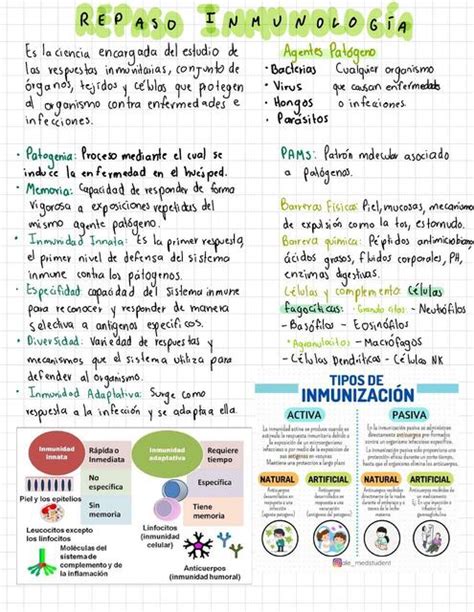 REPASO INMUNOLOGÍA
Es la ciencia encargada del estudio de
las respuestas inmunitarias, conjunto de
órganos, tejidos y células que protegen
al organismo contra enfermedades e
infecciones.
Agentes Patógeno
• Bacterias
• Virus
• Hongos
• Parásitos
Cualquier organismo
que causan enfermedades
o infecciones.
• Patogenia: Proceso mediante el cual se
induce la enfermedad en el huésped.
• Memoria: Capacidad de responder de forma
vigorosa a exposiciones repetidas del
mismo agente patógeno.
• Inmunidad Innata: Es la primer respuesta,
el primer nivel de defensa del sistema
inmune contra los patógenos.
• Especifidad: capacidad del Sistema inmune
para reconocer y responder de manera
selectiva a antígenos específicos.
• Diversidad: Variedad de respuestas y
mecanismos que el sistema utiliza para
defender al organismo.
• Inmunidad Adaptativa: Surge como
respuesta a la infección y se adapta a ella.
PAMS: Patrón molecular asociado
a patógenos.
Barreras Físicas: Piel, mucosas, mecanismo
de expulsión como la tos, estornudo.
Barrera química: Péptidos antimicobiano
ácidos grasos, fluidos corporales, PH,
enzimas digestivas.
Células y complemento: Células
fagocíticas: • Granulocitos - Neutrófilos
- Basófilos - Eosinófilos
• Agranulocitos - Macrófagos
- Células Dendríticas - Células NK
Inmunidad
innata
Rápida o
Inmediata
No
específica
Sin
memoria
Piel y los epitelios
Leucocitos excepto
los linfocitos
Moléculas del
sistema de
complemento y de
la inflamación
Inmunidad
adaptativa
Requiere
tiempo
Específica
Tiene
memoria
Linfocitos
(inmunidad
celular)
Anticuerpos
(inmunidad humoral)
TIPOS DE
INMUNIZACIÓN
ACTIVA
PASIVA
NATURAL
ARTIFICIAL
NATURAL
ARTIFICIAL